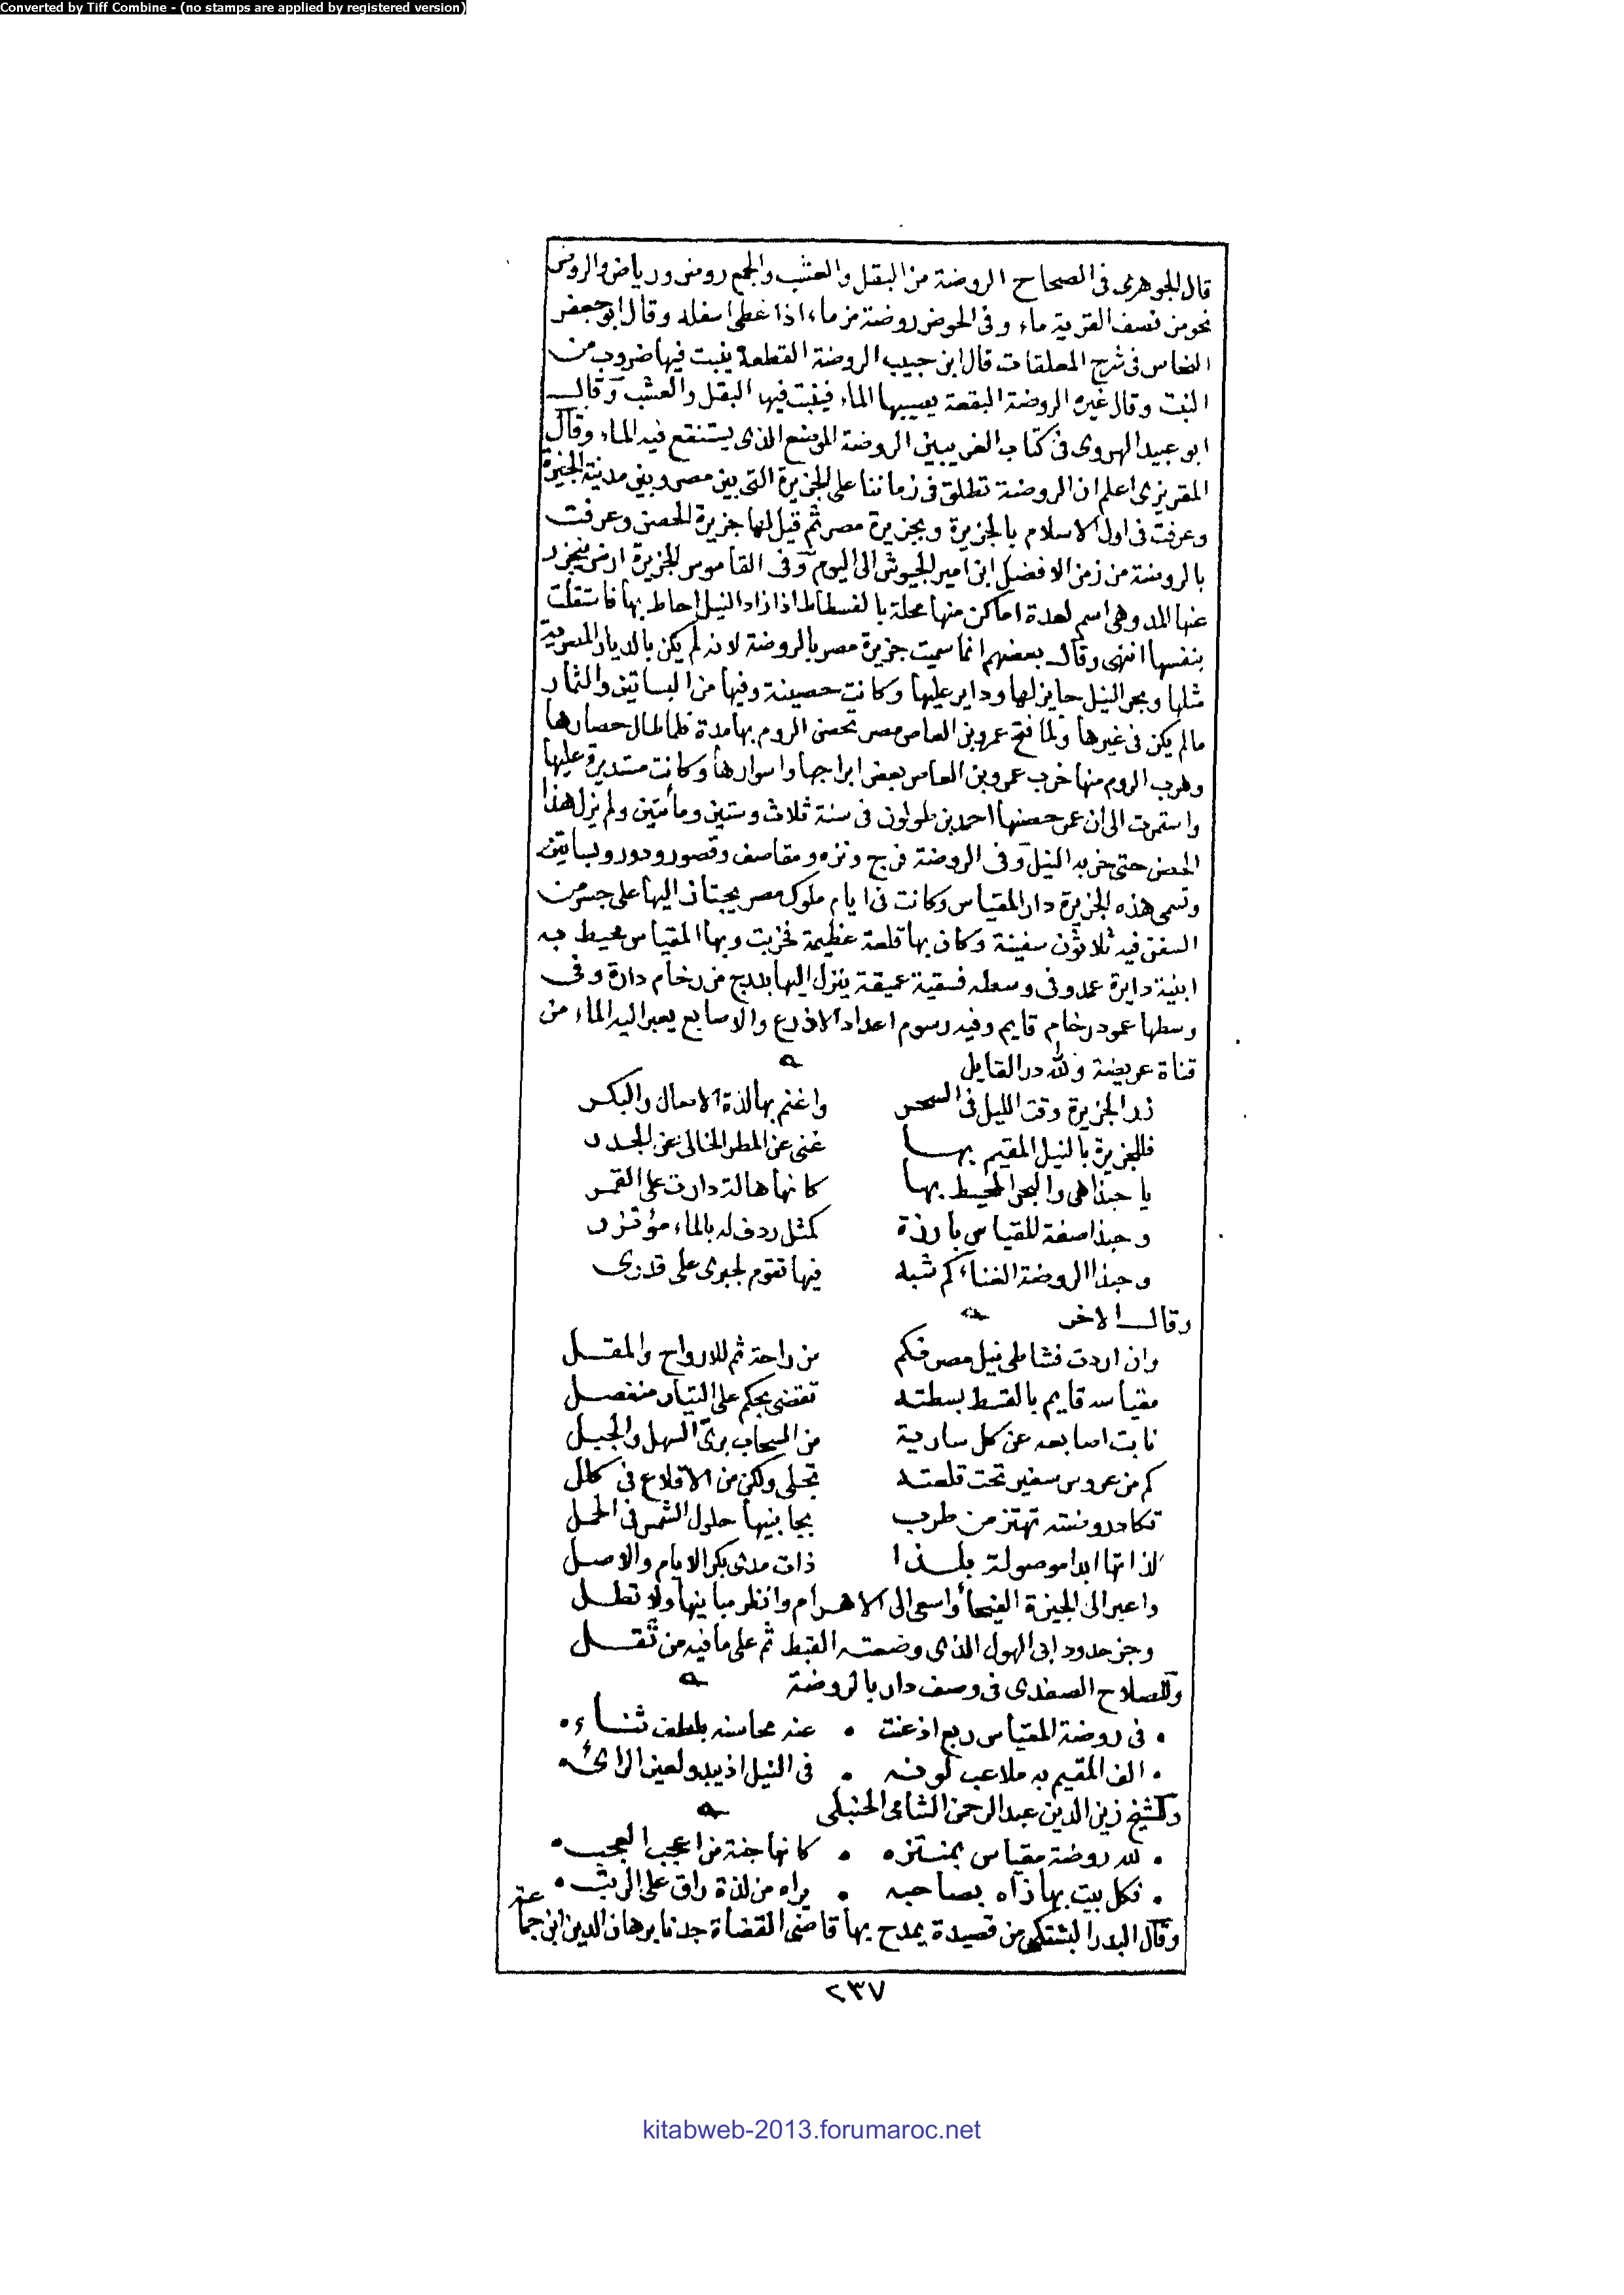 Converted by Tiff Combine - (no stamps are applied by registered version)
قال الجوهرى فى الصحاح الروضة من البقل والعشب والجمع روض ورياض والروض
نحو من نصف القربة ماء وفى الحوض روضة من ماء اذا غطى اسفله وقال ابو جعفر
النحاس فى شرح المعلقات قال ابن حبيب الروضة القطعة ينبت فيها ضروب من
النبت وقال غيره الروضة البقعة يصيبها الماء فينبت فيها البقل والعشب وقال
ابو عبيد الهروى فى كتاب الغريبين الروضة الموضع الذى يستنقع فيه الماء وقال
المقريزى اعلم ان الروضة تطلق فى زماننا على الجزيرة التى بين مصر وبين مدينة الجيزة
وعرفت فى اول الاسلام بالجزيرة وبجزيرة مصر ثم قيل لها جزيرة الحصن وعرفت
بالروضة من زمن الافضل ابن امير الجيوش الى اليوم وفى القاموس الجزيرة ارض ينجزر
عنها المد وهى اسم لعدة اماكن منها محلة بالفسطاط اذا زاد النيل احاط بها فاستقلت
بنفسها انتهى وقال بعضهم انما سميت جزيرة مصر بالروضة لانه لم يكن بالديار المصرية
مثلها وبحر النيل حايز لها وداير عليها وكانت حصينة وفيها من البساتين والثمار
مالم يكن فى غيرها ولما فتح عمرو بن العاص مصر تحصن الروم بها مدة فلما طال حصارها
وهرب الروم منها خرب عمرو بن العاص بعض ابراجها واسوارها وكانت مستديرة عليها
واستمرت الى ان عمر حصنها احمد بن طولون فى سنة ثلاث وستين ومأتين ولم يزل هذا
الحصن حتى خربه النيل وفى الروضة فرج ونزه ومقاصف وقصور ودور وبساتين
وتسمى هذه الجزيرة دار المقياس وكانت فى ايام ملوك مصر يجتاز اليها على جسر من
السفن فيه ثلاثون سفينة وكان بها قلعة عظيمة فخربت وبها المقياس محيط به
ابنية دايرة عمد وفى وسطه فسقية عميقة ينزل اليها بدرج من رخام دارة وفى
وسطها عمود رخام قايم وفيه رسوم اعداد الاذرع والاصابع يعبر اليه الماء من
قناة عريضة ولله در القايل
زر الجزيرة وقت الليل فى السحر واغنم بها لذة الاصال والبكر
فللجزيرة بالنيل المقيم بها غنى عن المطر الخالى عن الجدر
يا حبذا هى والبحر المحيط بها كانها هالة دارت على القمر
وحبذا صفة للقياس بارزة كمثل ردف له بالماء مؤتزر
وحبذا الروضة الغناء كم شبه فيها تقوم لجوى على قدرى
وقال الاخر
وان اردت فشاطى نيل مصر فكم من راحة ثم للارواح والمقل
مقياسه قايم بالقسط بسطته تقضى بحكم على التيار منفصل
نابت اصابعه عن كل سارية من السحاب بوى السهل والجبل
كم من عروس سفير تحت قلعته تجلى ولكن من الاقلاع فى كلل
تكاد روضته تهتز من طرب بجانبيها حلول الشمس فى الحمل
لذاتها ابدا موصولة بلذا ذات مدى بكر الايام والاصل
واعبر الى الجيزة الفيحأ واسعى الى الاهرام وانظر مبانيها ولا تطل
وجز حدود ابى الهول الذى وضعته القبط ثم على ما فيه من ثقل
وللصلاح الصفدى فى وصف دار بالروضة
• فى روضة المقياس ربع اذعنت • عنه محاسنه بلطف ثناء •
• الف المقيم به ملاعب لونه • فى النيل اذ يبدو لعين الرائ •
وللشيخ زين الدين عبد الرحمن الشامى الحنبلى
• لله روضة مقياس بمنتزه • كانها جنة من اعجب العجب •
• فكل بيت بها زاه بصاحبه • يراه من لذة راق على الرتب •
وقال البدر البشتكى من قصيدة يمدح بها قاضى القضاة جدنا برهان الدين ابن جماعة
٢٣٧
kitabweb-2013.forumaroc.net